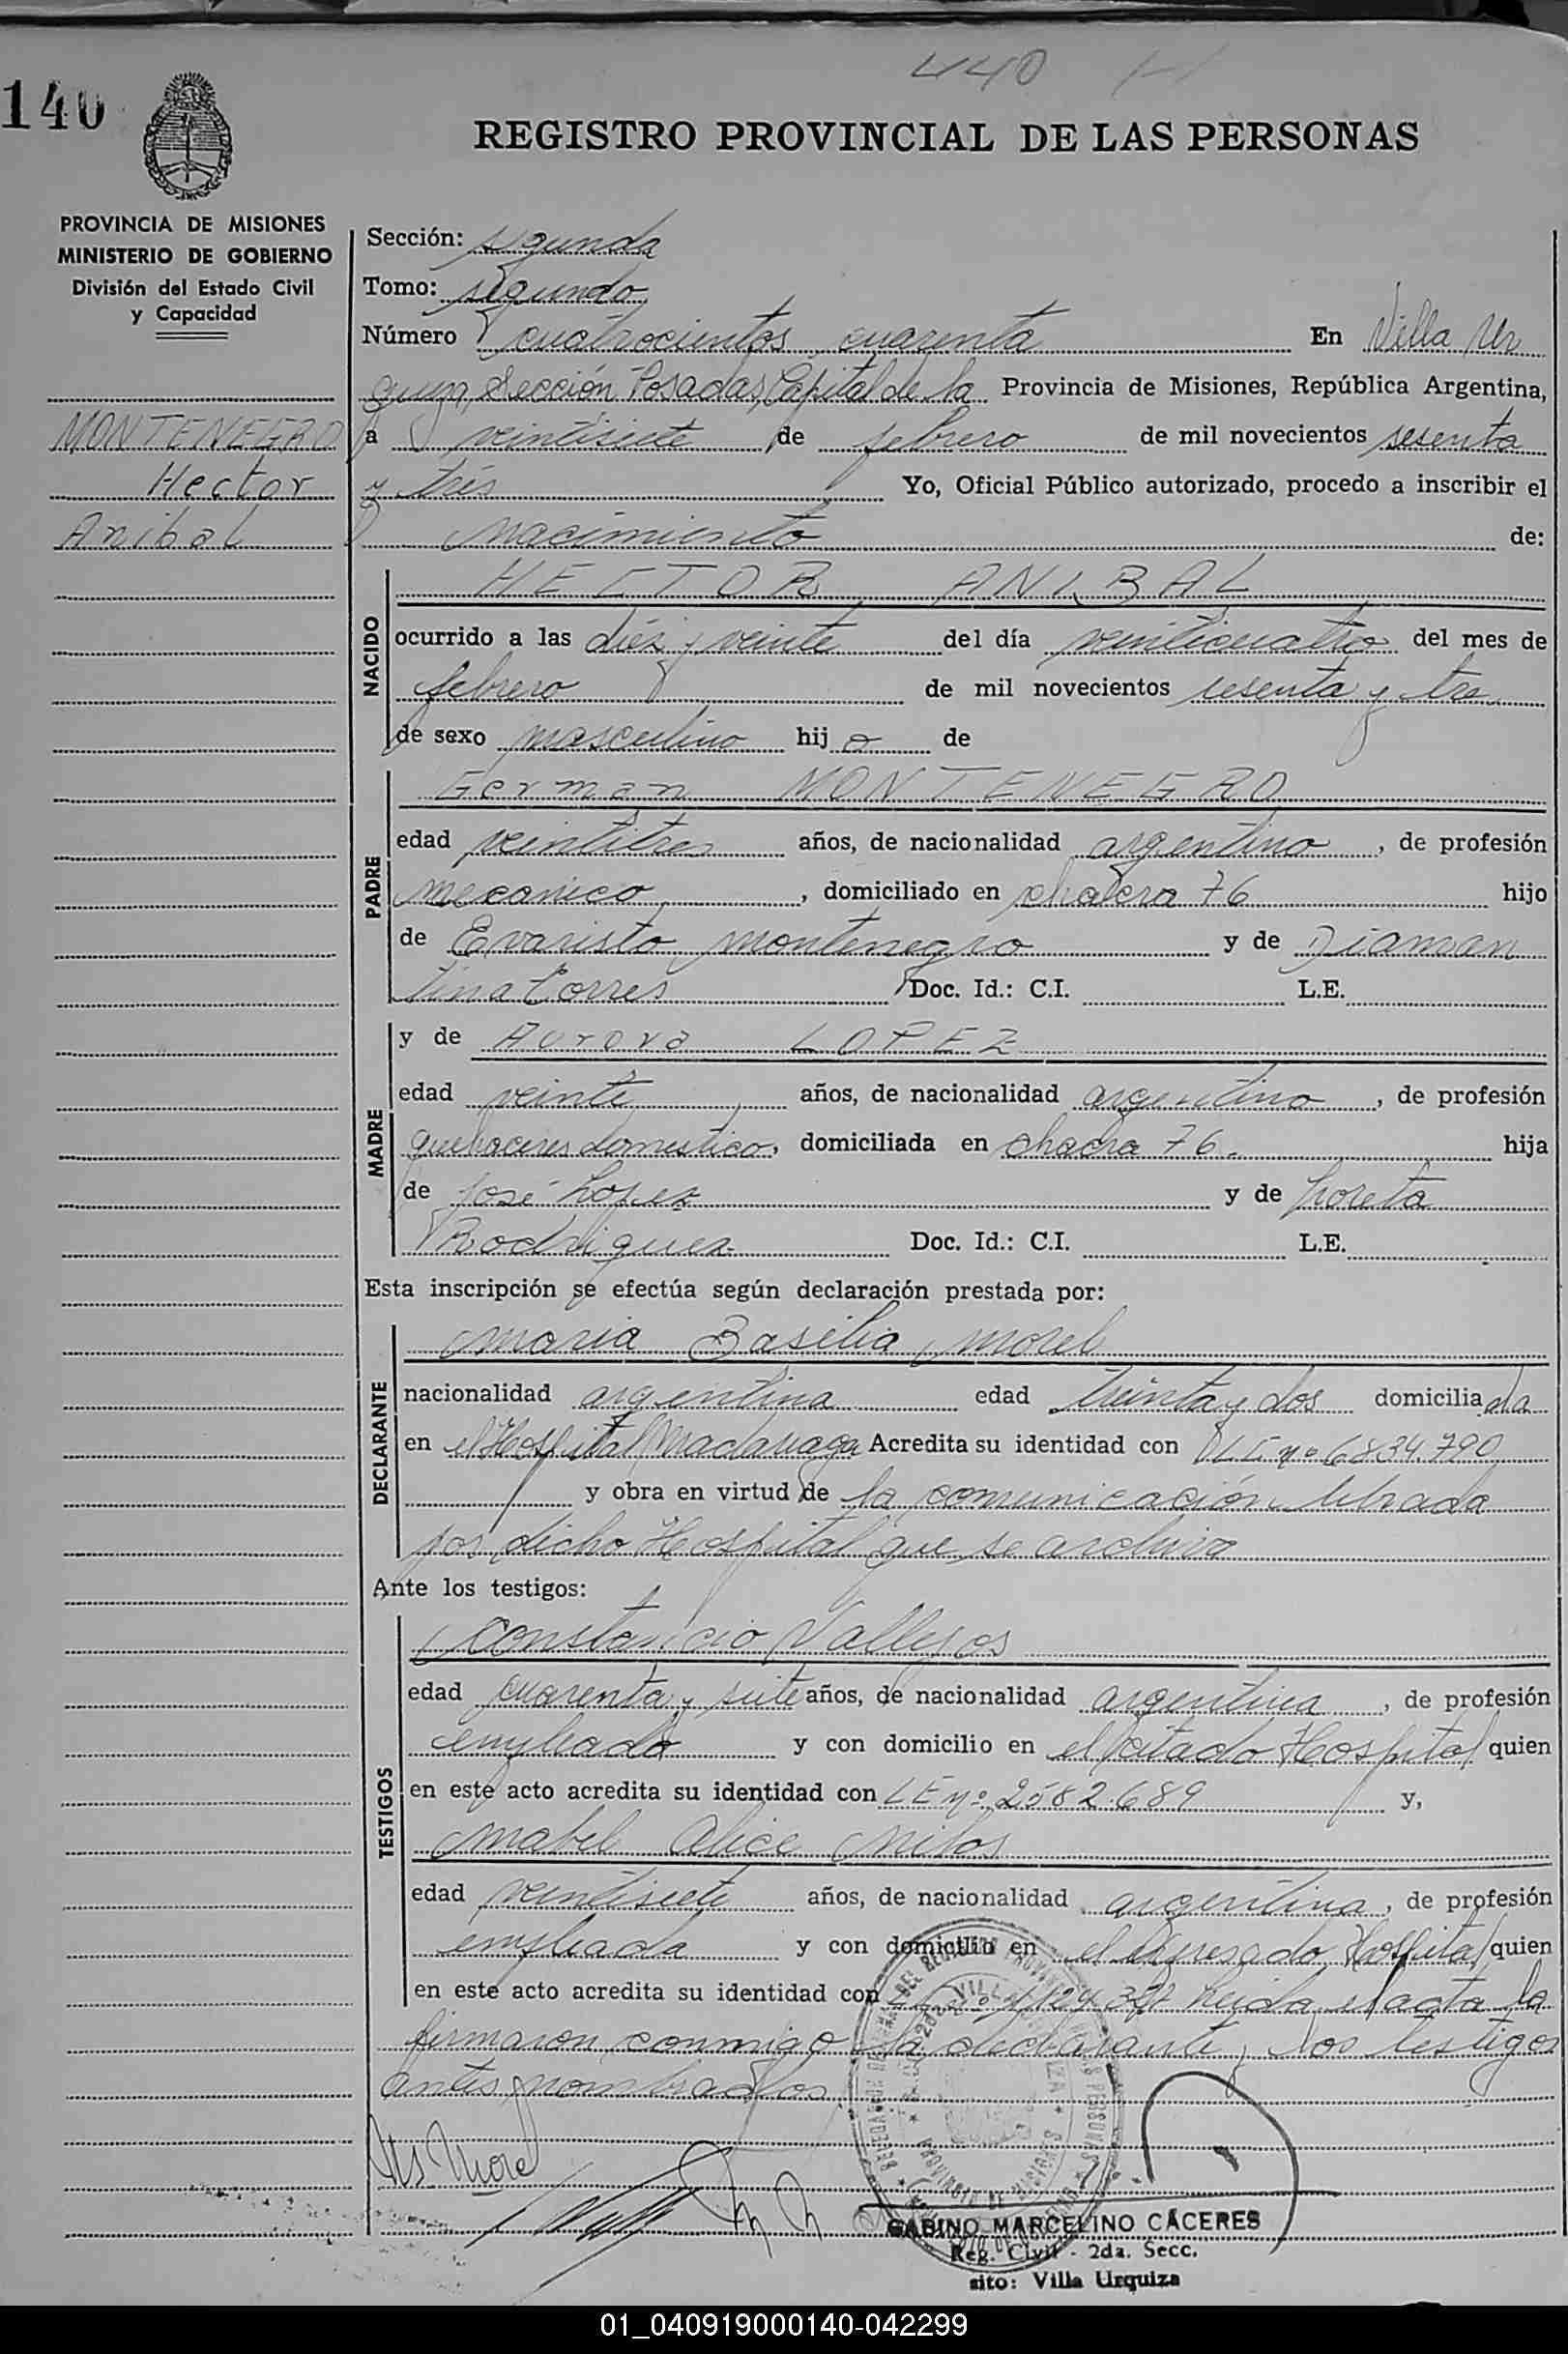 440
140
REGISTRO PROVINCIAL DE LAS PERSONAS
PROVINCIA DE MISIONES
MINISTERIO DE GOBIERNO
División del Estado Civil
y Capacidad
MONTENEGRO
Hector
Anibal
Sección: segunda
Tomo: segundo
Número cuatrocientos cuarenta En Villa Ur
quiza, Sección Posadas, Capital de la Provincia de Misiones, República Argentina,
a veintisiete de febrero de mil novecientos sesenta
y tres Yo, Oficial Público autorizado, procedo a inscribir el
nacimiento de:
NACIDO
HECTOR ANIBAL
ocurrido a las diés y veinte del día veinticuatro del mes de
febrero de mil novecientos sesenta y tres
de sexo masculino hijo de
PADRE
German MONTENEGRO
edad veintitres años, de nacionalidad argentino, de profesión
mecanico, domiciliado en chacra 76 hijo
de Evaristo Montenegro y de Diaman
tina Torres Doc. Id.: C.I. L.E.
MADRE
y de Aurora LOPEZ
edad veinte años, de nacionalidad argentina, de profesión
quehaceres domestico, domiciliada en chacra 76. hija
de José Lopez y de Loreta
Rodriguez Doc. Id.: C.I. L.E.
Esta inscripción se efectúa según declaración prestada por:
DECLARANTE
Maria Basilia Morel
nacionalidad argentina edad treinta y dos domiciliada
en el Hospital Madariaga Acredita su identidad con L.E. nº 6834.790
y obra en virtud de la comunicación librada
por dicho Hospital que se archiva
Ante los testigos:
TESTIGOS
Constancio Vallejos
edad cuarenta y siete años, de nacionalidad argentina, de profesión
empleado y con domicilio en el citado Hospital quien
en este acto acredita su identidad con LE nº 2582.689 y,
Mabel Alice Milos
edad veintisiete años, de nacionalidad argentina, de profesión
empleada y con domicilio en el expresado Hospital quien
en este acto acredita su identidad con Leida el acta la
firmaron conmigo la declarante y los testigos
antes nombrados
Ms Morel
GABINO MARCELINO CACERES
Reg. Civil - 2da. Secc.
sito: Villa Urquiza
01_040919000140-042299